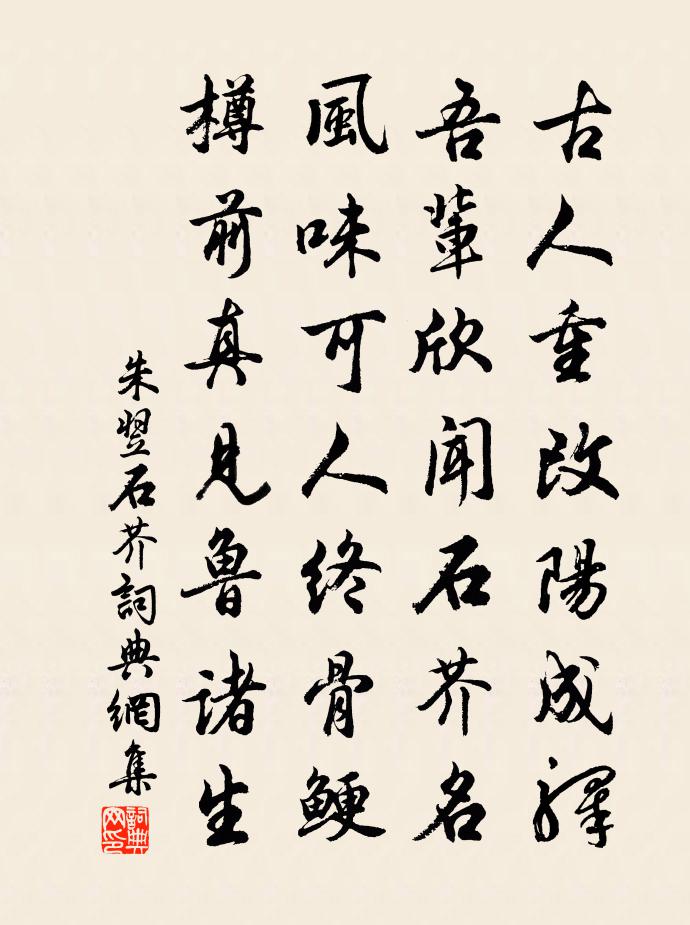 古人重改陽成驛
吾輩欣聞石芥名
風味可人終骨鯁
樽前真見魯諸生
朱翌石芥詞典網集
詞典网印